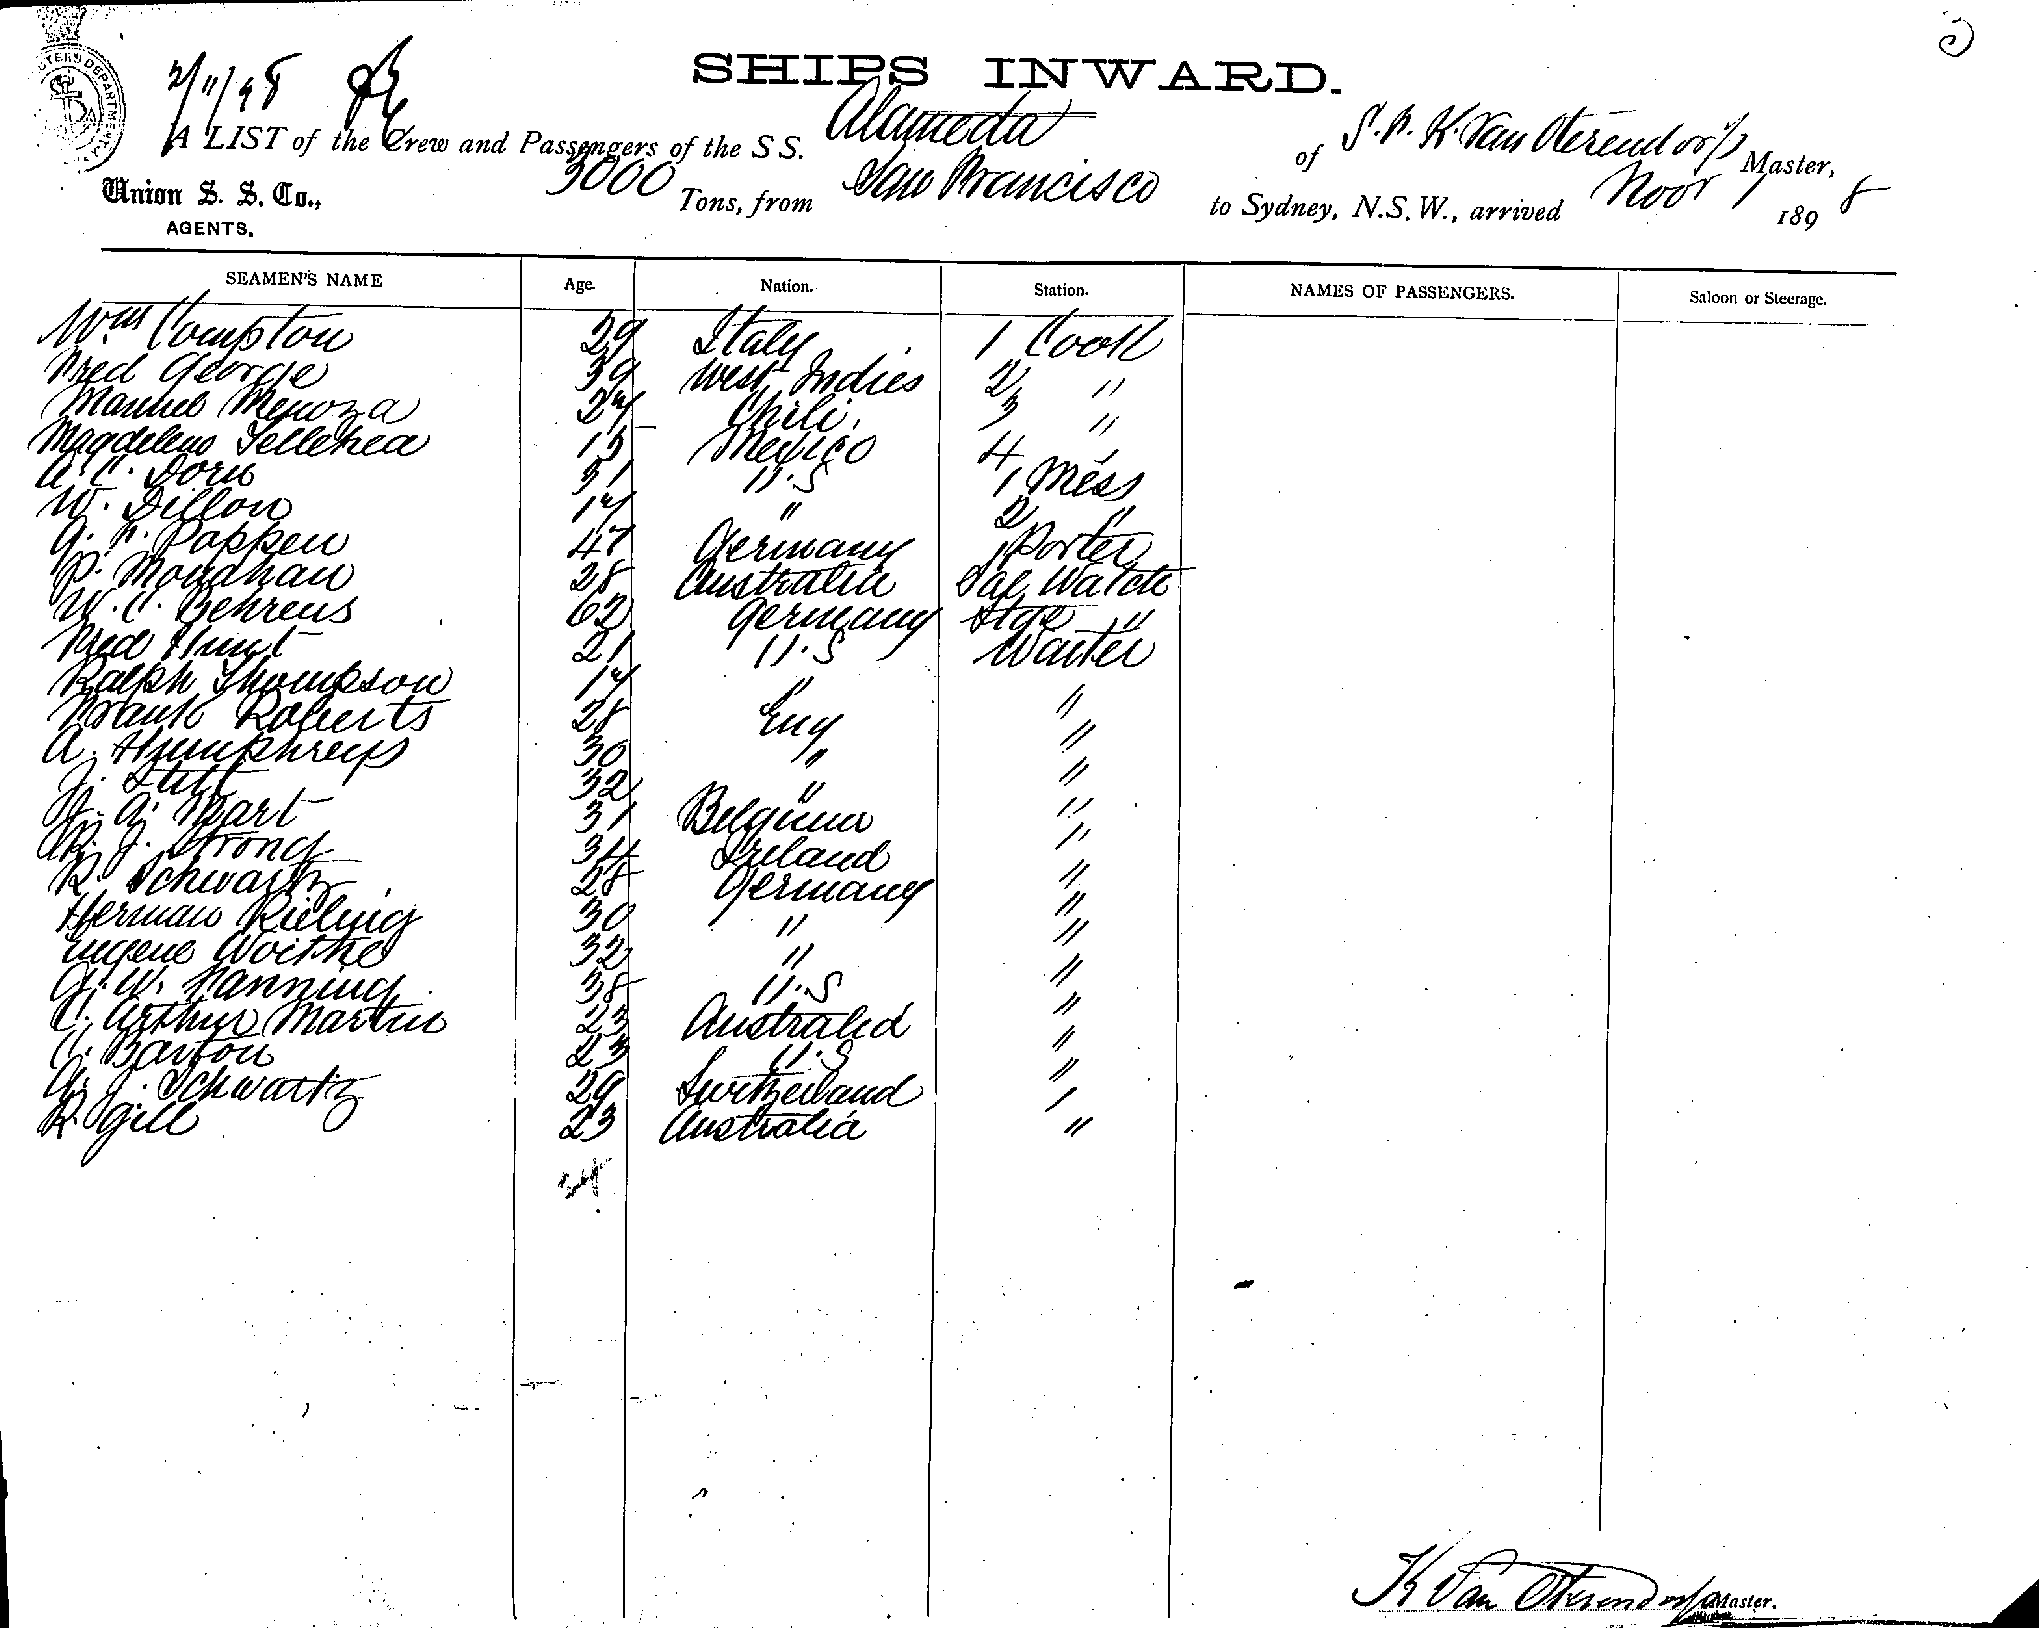 2/11/98
SHIPS INWARD.
A LIST of the Crew and Passengers of the SS. Alameda of S. F. K. Van Oterendorp Master,
Union S. S. Co., 3000 Tons, from San Francisco to Sydney, N.S.W., arrived Novr 1 1898
AGENTS.
SEAMEN'S NAME Age. Nation. Station. NAMES OF PASSENGERS. Saloon or Steerage.
Wm Compton 29 Italy 1 Cook
Fred George 39 West Indies 2 "
Manuel Menoza 27 Chili 3 "
Magdeleno 15 Mexico 4 "
A. C. Dorn 31 U.S 1 Mess
W. Dillon 17 " 2 "
G. F. Pappen 47 Germany 1 Porter
P. Monahan 28 Australia Sal Watch
W. C. Behrens 62 Germany Stge "
Fred Hunt 21 U.S Waiter
Ralph Thompson 17 " "
Frank Roberts 28 Eng "
A. Humphreys 30 " "
J. 32 " "
A. Mart 31 Belgium "
J. Strong 34 Ireland "
R. Schwartz 28 Germany "
Herman Rieling 30 " "
Eugene Woithe 32 " "
G. W. Fanning 38 U.S "
C. Arthur Martin 23 Australia "
C. Barton 23 U.S "
G. J. Schwartz 29 Switzerland "
R. Gill 23 Australia "
24
K Van Oterendorp Master.